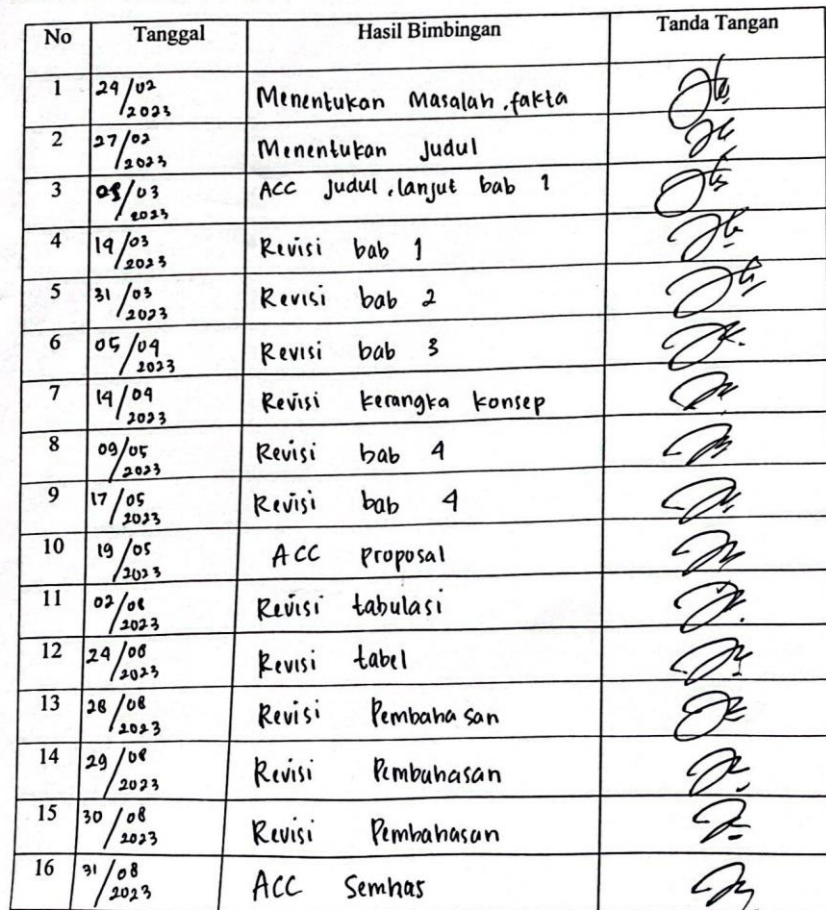 No Tanggal Hasil Bimbingan Tanda Tangan
1 24/02 2023 Menentukan Masalah, fakta
2 27/02 2023 Menentukan Judul
3 08/03 2023 ACC Judul, lanjut bab 1
4 14/03 2023 Revisi bab 1
5 31/03 2023 Revisi bab 2
6 05/04 2023 Revisi bab 3
7 14/04 2023 Revisi kerangka konsep
8 09/05 2023 Revisi bab 4
9 17/05 2023 Revisi bab 4
10 19/05 2023 ACC proposal
11 02/08 2023 Revisi tabulasi
12 24/08 2023 Revisi tabel
13 28/08 2023 Revisi Pembahasan
14 29/08 2023 Revisi Pembahasan
15 30/08 2023 Revisi Pembahasan
16 31/08 2023 ACC Semhas